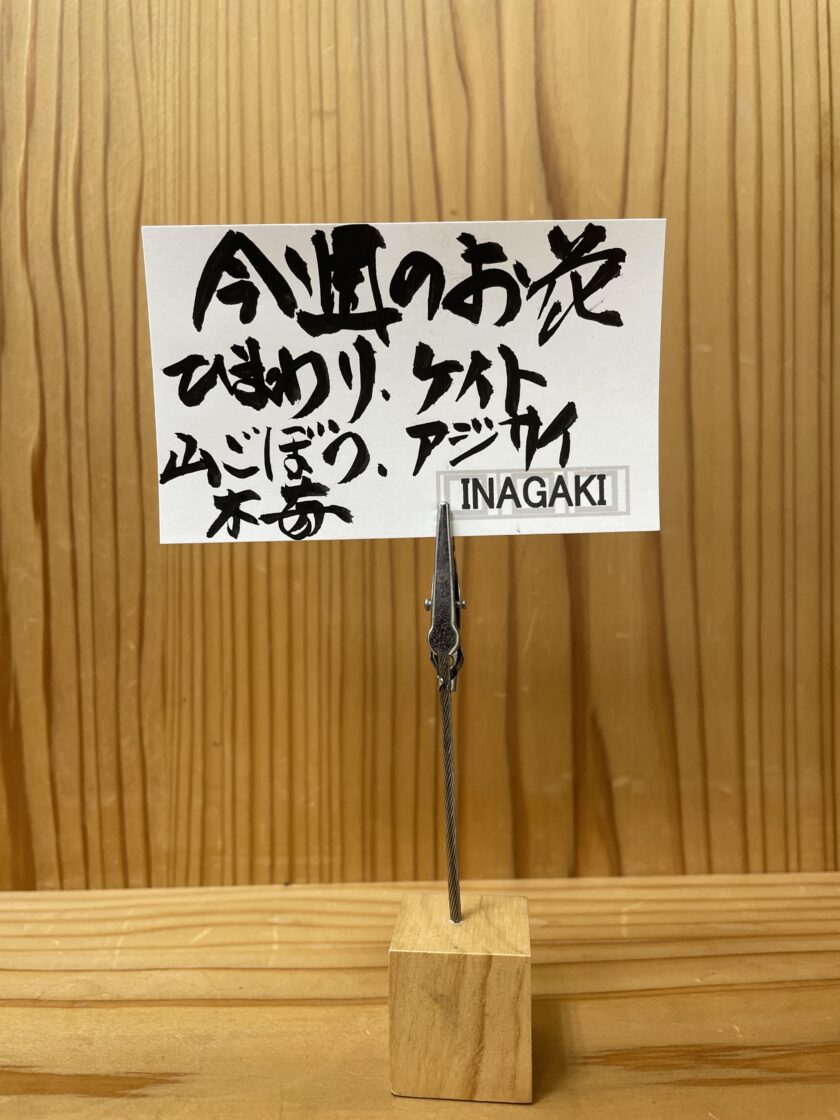 今週のお花
ひまわり、ケイト
山ごぼう、アジサイ
木苺
INAGAKI